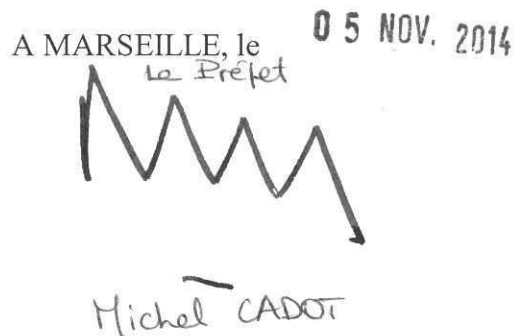 A MARSEILLE, le 05 NOV. 2014
Le Préfet
Michel CADOT